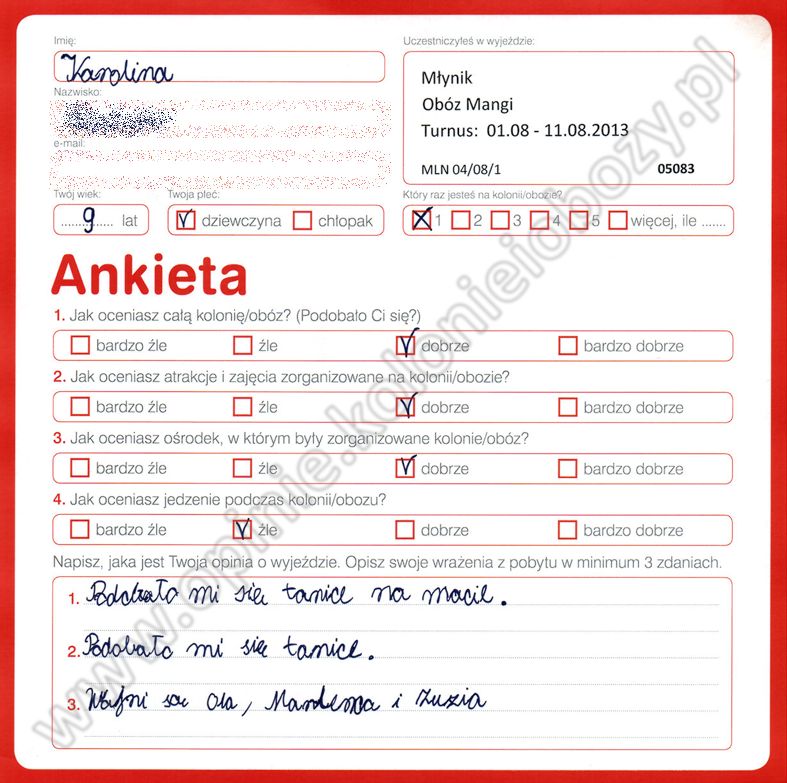 Imię:
Karolina
Nazwisko:
e-mail:
Uczestniczyłeś w wyjeździe:
Młynik
Obóz Mangi
Turnus: 01.08 - 11.08.2013
MLN 04/08/1 05083
Twój wiek:
9 lat
Twoja płeć:
dziewczyna chłopak
Który raz jesteś na kolonii/obozie?
1 2 3 4 5 więcej, ile .......
Ankieta
1. Jak oceniasz całą kolonię/obóz? (Podobało Ci się?)
bardzo źle źle dobrze bardzo dobrze
2. Jak oceniasz atrakcje i zajęcia zorganizowane na kolonii/obozie?
bardzo źle źle dobrze bardzo dobrze
3. Jak oceniasz ośrodek, w którym były zorganizowane kolonie/obóz?
bardzo źle źle dobrze bardzo dobrze
4. Jak oceniasz jedzenie podczas kolonii/obozu?
bardzo źle źle dobrze bardzo dobrze
Napisz, jaka jest Twoja opinia o wyjeździe. Opisz swoje wrażenia z pobytu w minimum 3 zdaniach.
1. mi się tańce na macie.
2. Podobało mi się tańce.
3. są Ola, i Zuzia
www.opinie.kolonieiobozy.pl